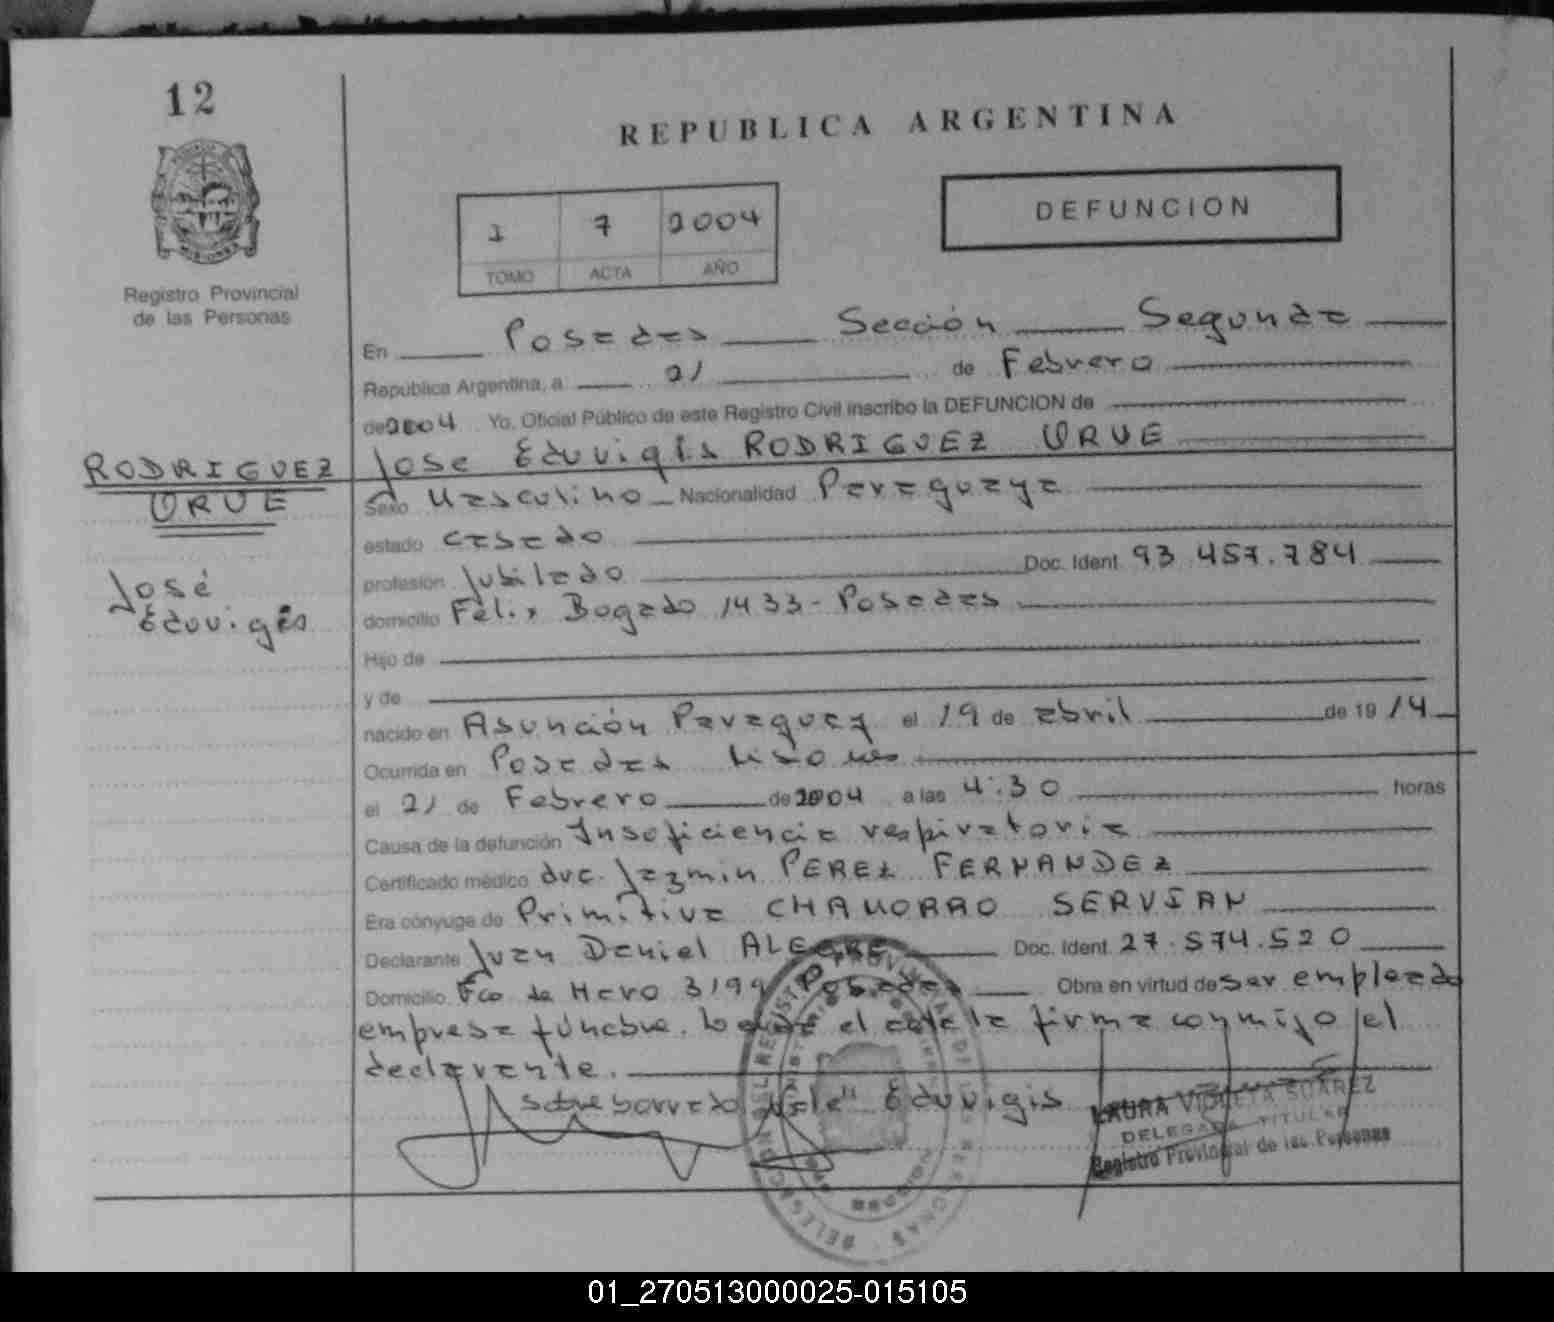 12
REPUBLICA ARGENTINA
DEFUNCION
1 7 2004
TOMO ACTA AÑO
Registro Provincial
de las Personas
En Posadas Sección Segunda
República Argentina, a 21 de Febrero
de 2004 Yo, Oficial Público de este Registro Civil inscribo la DEFUNCION de
RODRIGUEZ
URUE
José
Eduvigis
Jose Eduvigis RODRIGUEZ URUE
Sexo Masculino Nacionalidad Paraguaya
estado casado
profesión Jubilado Doc. Ident. 93.457.784
domicilio Félix Bogado 1433 - Posadas
Hijo de
y de
nacido en Asunción Paraguay el 19 de abril de 1914
Ocurrida en Posadas Misiones
el 21 de Febrero de 2004 a las 4:30 horas
Causa de la defunción Insuficiencia respiratoria
Certificado médico dra. Jazmin PEREZ FERNANDEZ
Era cónyuge de Primitiva CHAMORRO SERVIAN
Declarante Juan Daniel ALEGRE Doc. Ident. 27.574.520
Domicilio Fco de Haro 3199 Posadas Obra en virtud de ser empleado
empresa fúnebre. Leída el acta la firma conmigo el
declarante.
sobreborrado vale" Eduvigis
LAURA VIOLETA SUAREZ
DELEGADA TITULAR
Registro Provincial de las Personas
01_270513000025-015105